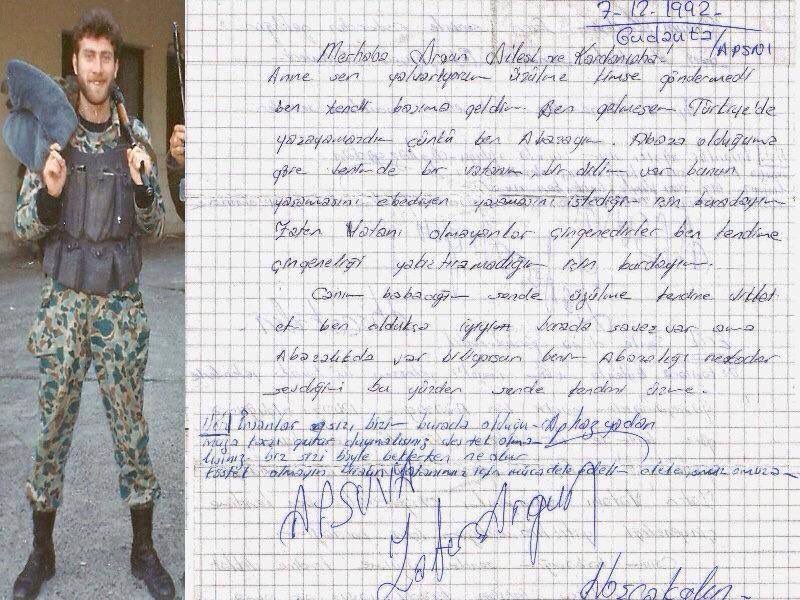 7-12-1992-
Gudauta/APSNI
Merhaba Argun Ailesi ve
Anne sen yalvarıyorum üzülme kimse göndermedi
ben kendi başıma geldim. Ben gelmesem Türkiye'de
yaşayamazdım çünkü ben Abazayım. Abaza olduğuma
göre benimde bir vatanım bir dilim var bunun
yaşamasını ebediyen yaşamasını istediğim için buradayım
Zaten Vatanı olmayanlar çingenedirler ben kendime
çingeneliği yakıştıramadığım için burdayım.
Canım babacığım sende üzülme kendine dikkat
et ben oldukça iyiyim burada savaş var ama
Abazalıkda var biliyorsun benim Abazalığı nekadar
sevdiğimi bu yüzden sende kendini üzme.
insanlar sizi, bizi burada olduğu
gurur duymalısınız destek olma
biz sizi böyle beklerken ne olur
köstek olmayın vatanımız için mücadele edelim
APSUVA
Zafer Argun
Hoşçakalın